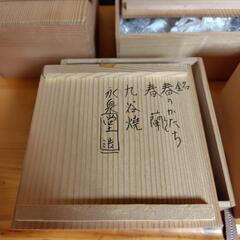 銘 春のかたち
春蘭
九谷焼
水泉堂造